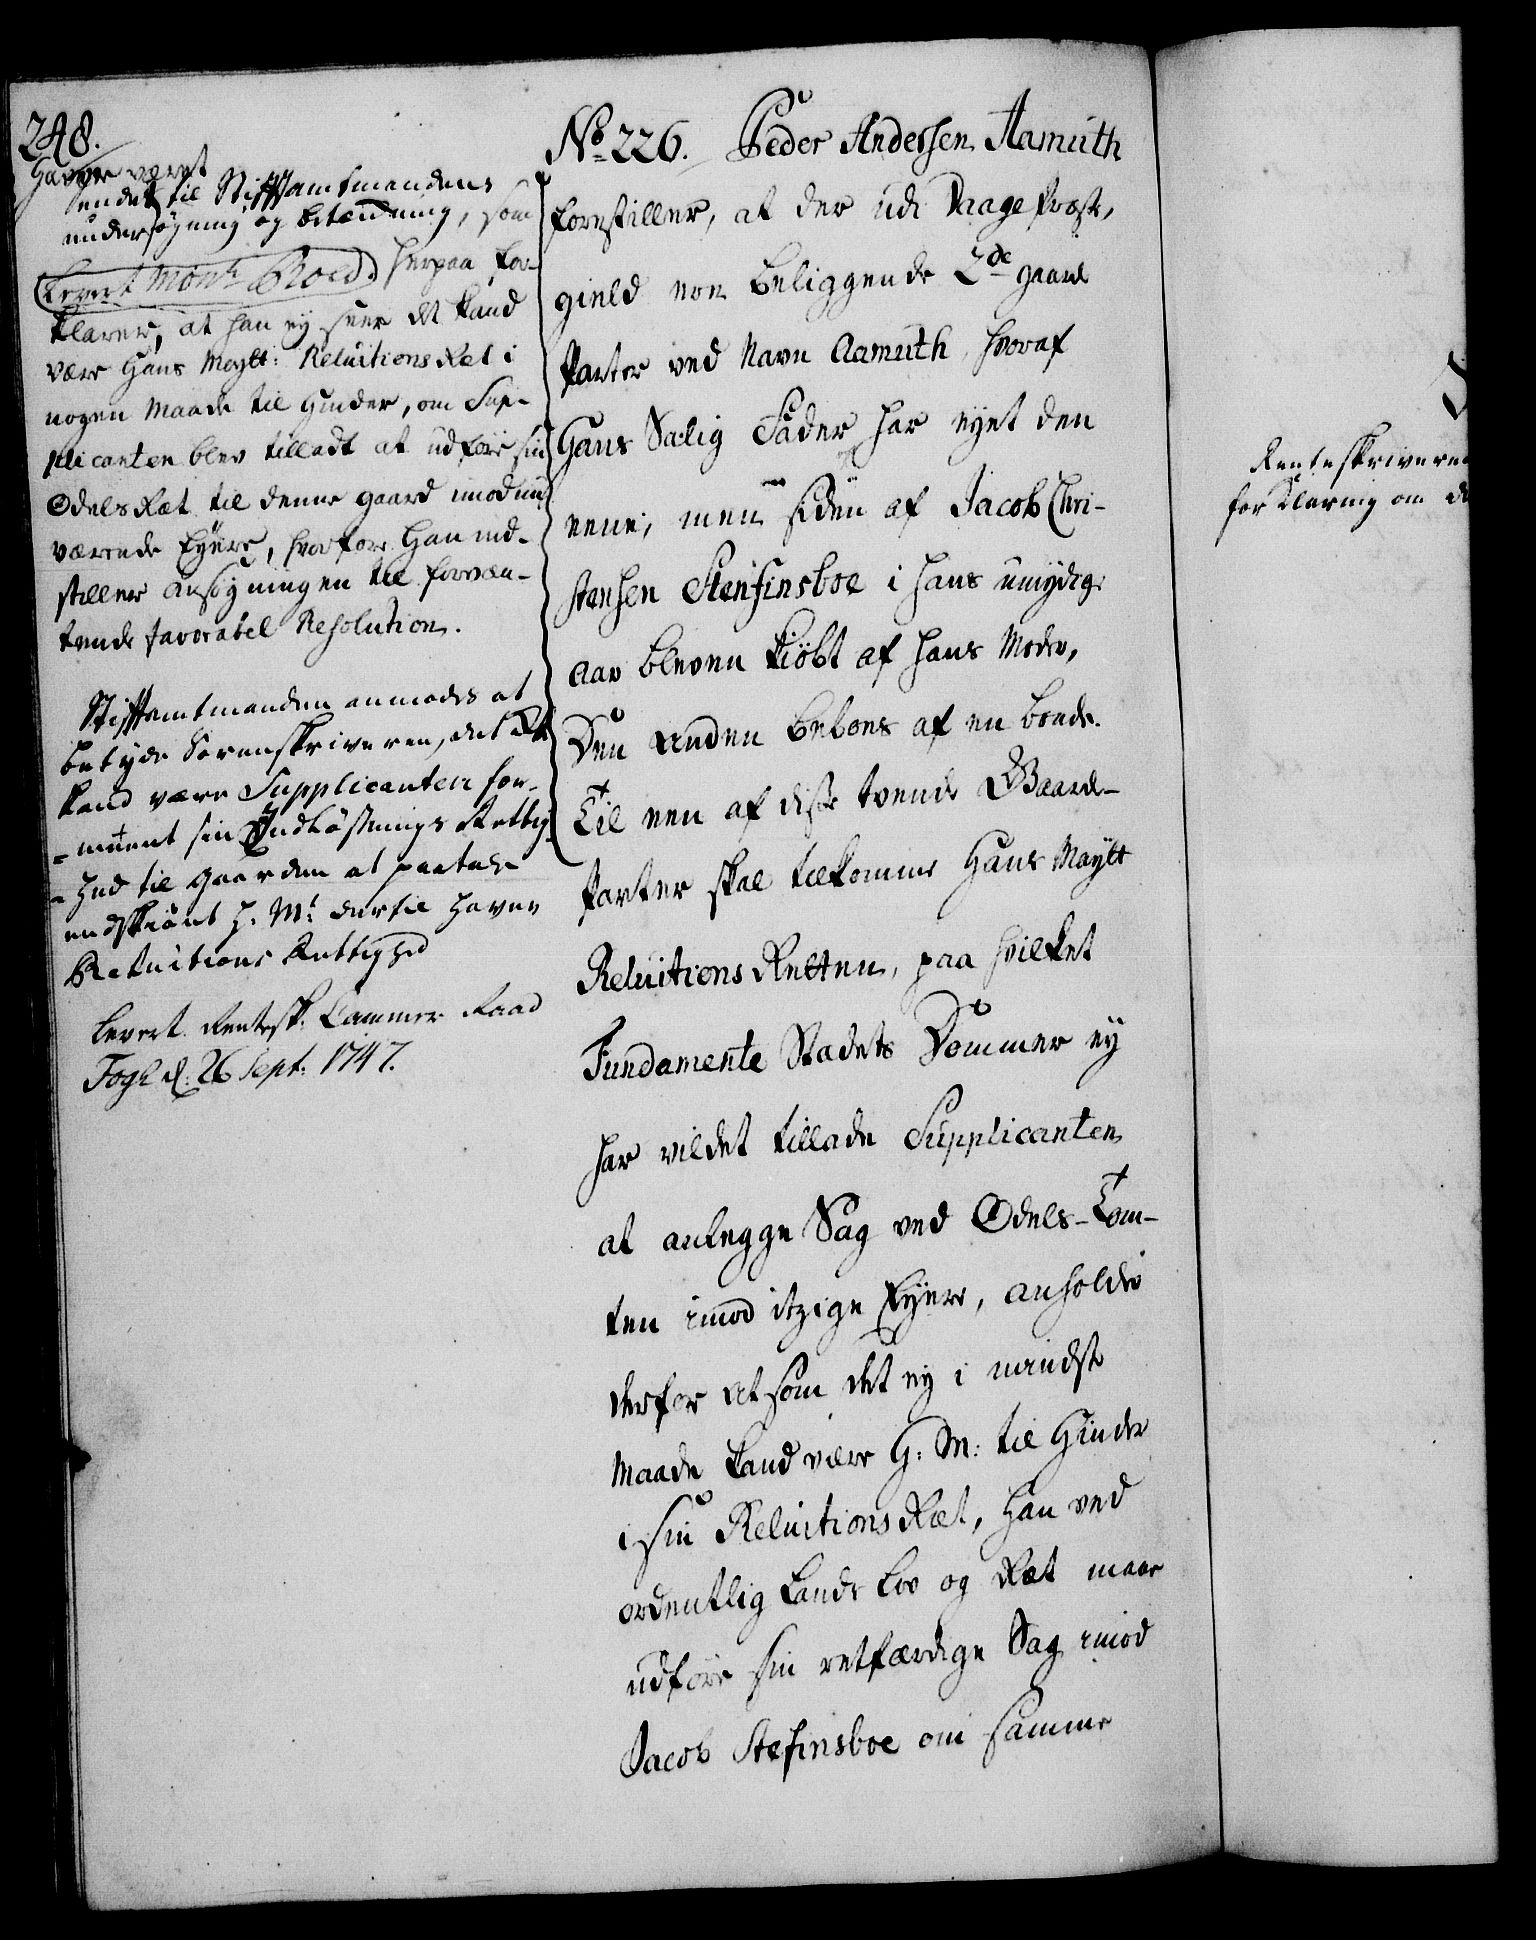 248.
Haver været
sendet til Stifftamtmandens
undersøgning og betænkning, som
Levert Monsr Roed. herpaa for-
klarer, at han ey seer det kand
være Hans Maytt: Reluitions Ræt i
nogen Maade til Hinder, om Sup-
plicanten blev tilladt at udføre sin
Odels Ræt til denne gaard imod nu
værende Eyere, hvorfore Han ind-
stiller ansøgningen til forvæn-
tende favorabel Resolution.
Stifftamtmanden anmodes at
betyde Sorenskriveren, at det
kand være Supplicanten for-
-meent sin Indløsnings Rettig-
-hed til Gaarden at paatale
endskiønt H: Mt: dertil haver
Reluitions Rettighed
levert Rentesk: Cammer Raad
Fogh d: 26 Sept: 1747.
No 226. Peder Andersen Aamuth
forestiller, at der udi Vaage Præste,
gield een beliggende 2de gaard
Parter ved Navn Aamuth, hvoraf
Hans Salig Fader har eyet den
eene, men siden af Jacob Chri-
stensen Stenfinsboe i hans umyndige
aar bleven kiøbt af hans Moder,
Den anden beboes af en bonde.
Til een af disse tvende Gaarde-
Parter skal tilkomme Hans Maytt
Reluitions Retten, paa hvilket
Fundamente Stædets Dommer ey
har vildet tillade Supplicanten
at anlegge Sag ved Odels-Tom-
ten imod itzige Eyere, anholder
derfor at som det ey i mindste
Maade kand være H: M: til Hinder
i sin Reluitions Ræt, han ved
ordentlig Lands Lov og Ræt maae
udføre sin retfærdige Sag imod
Jacob Stefinsboe om samme
Renteskriveren
forklaring om